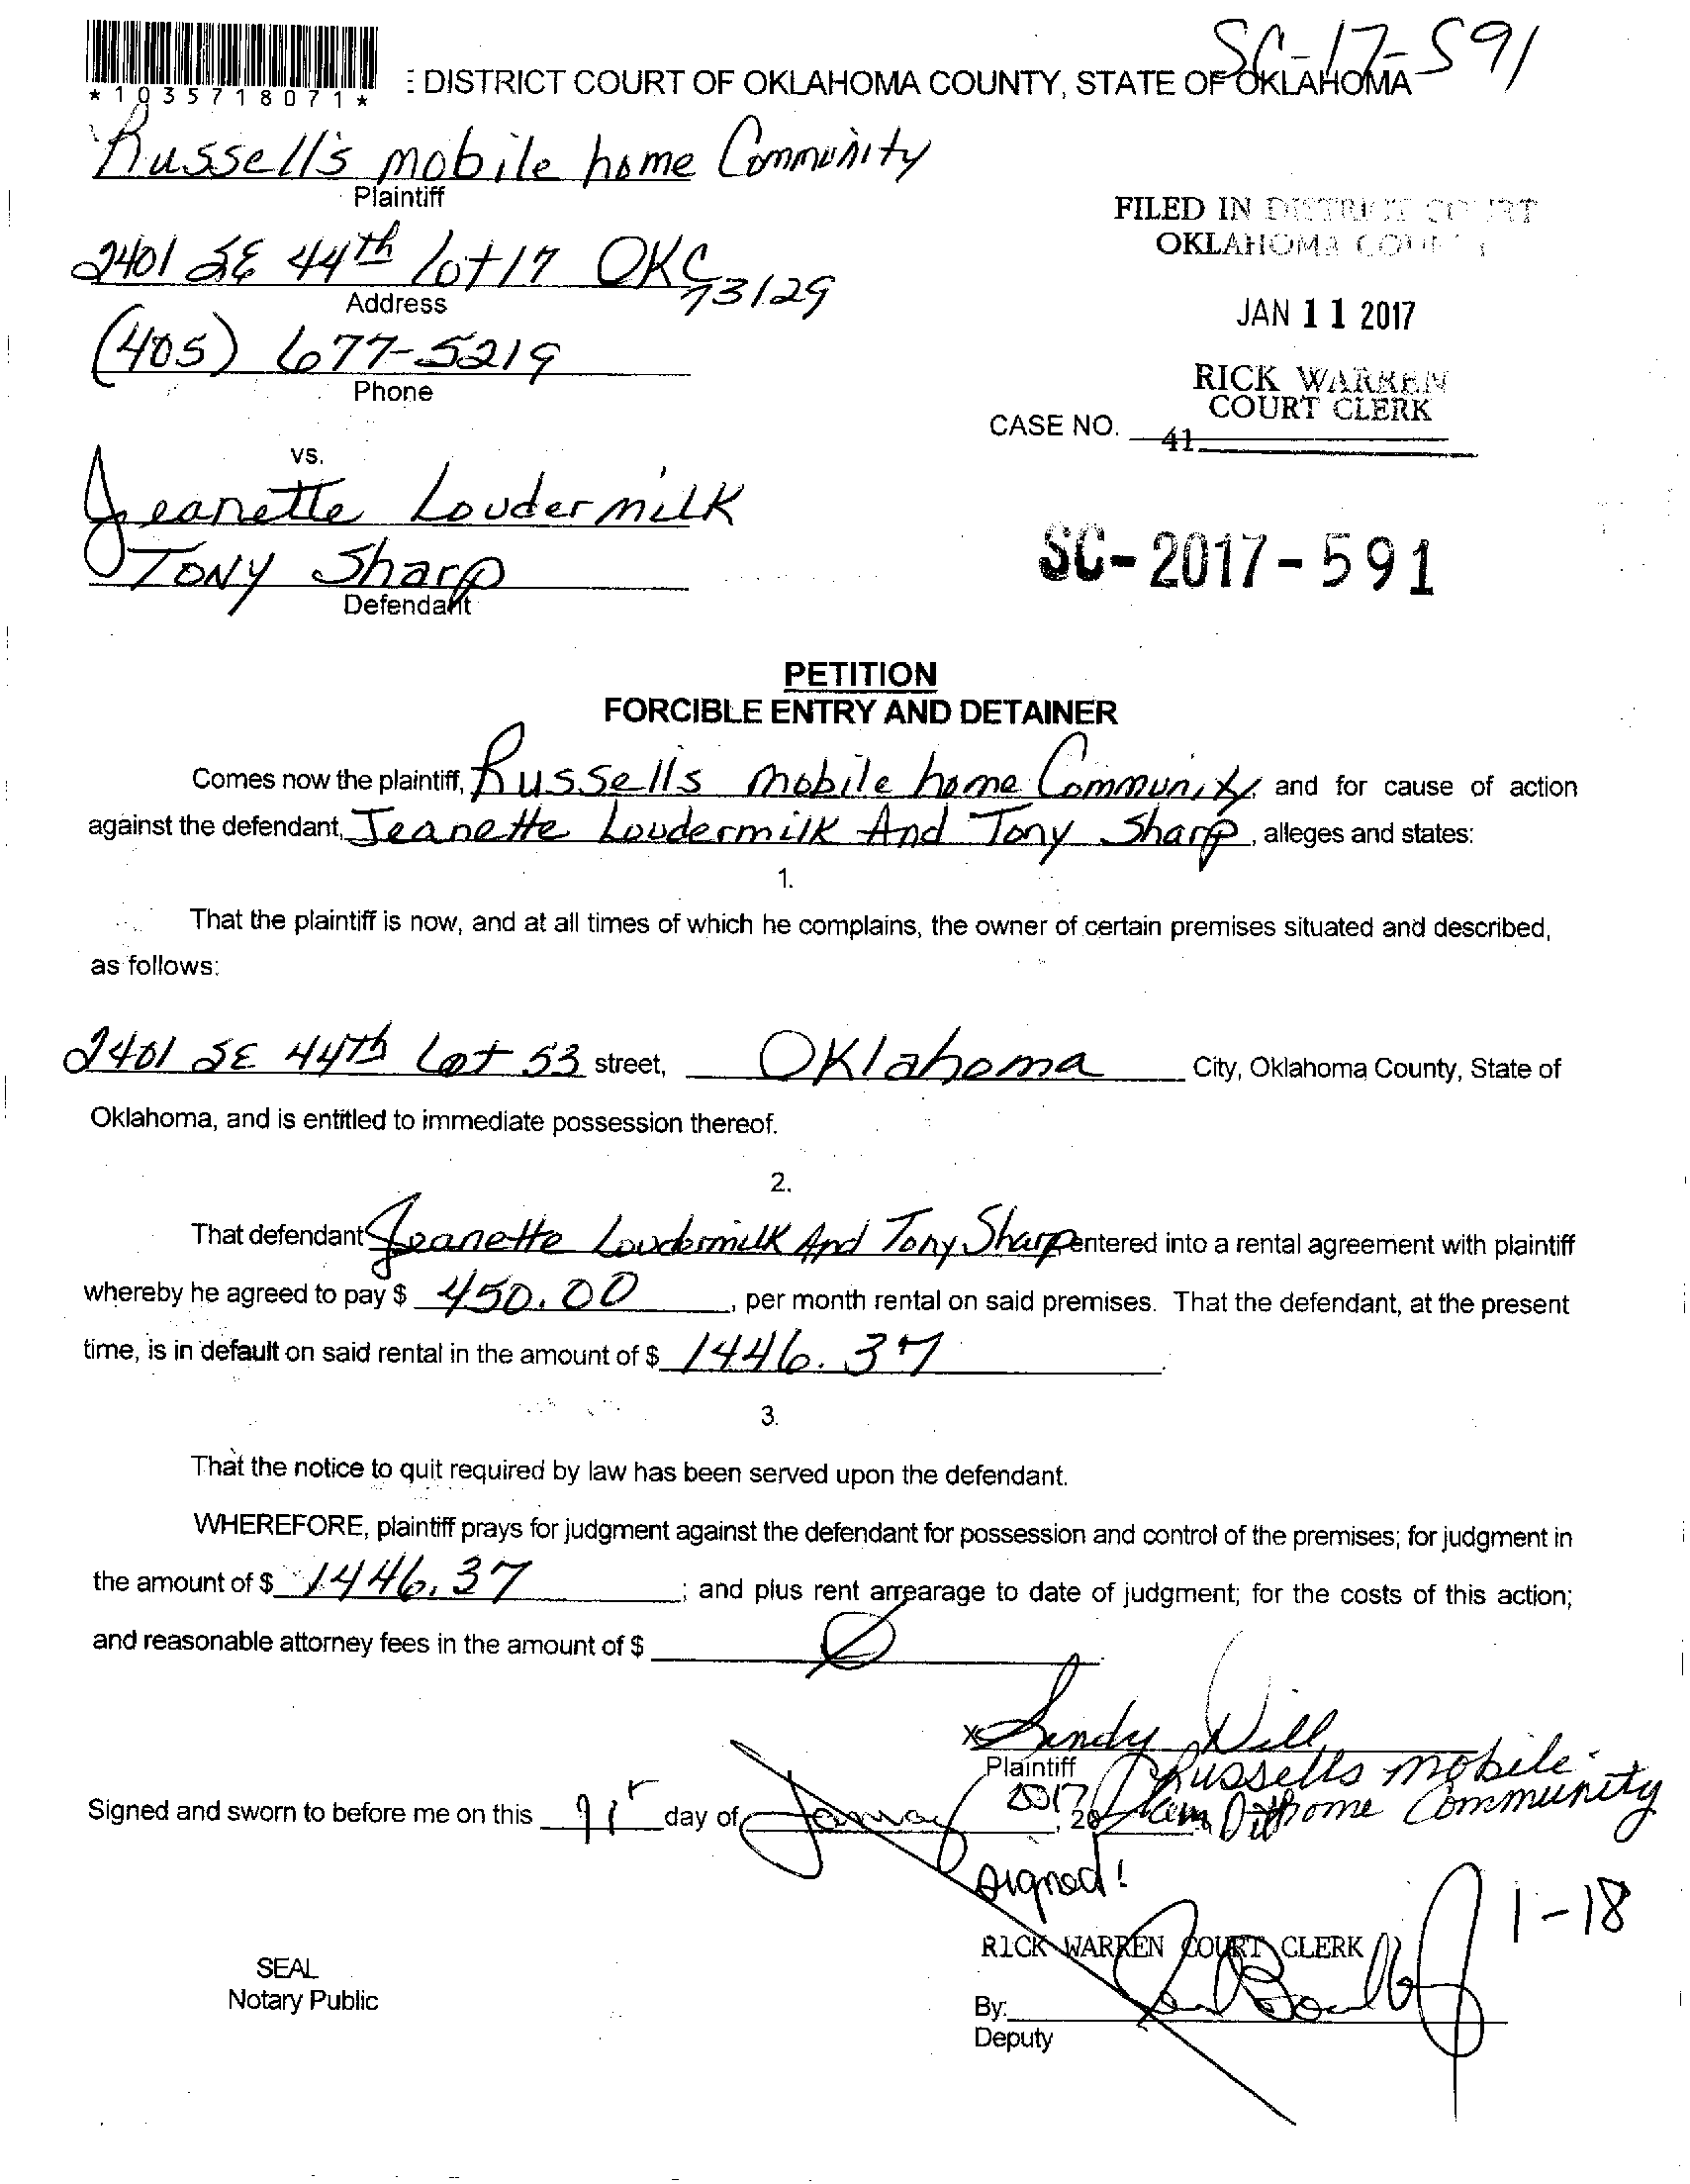 SC-17-591
*1035718071*
: DISTRICT COURT OF OKLAHOMA COUNTY, STATE OF OKLAHOMA
Russell's mobile home Community
Plaintiff
2401 SE 44th Lot 17 OKC 73129
Address
(405) 677-5219
Phone
FILED IN DISTRICT COURT
OKLAHOMA COUNTY
JAN 11 2017
RICK WARREN
COURT CLERK
CASE NO. 41
vs.
Jeanette Loudermilk
Tony Sharp
Defendant
SC-2017-591
PETITION
FORCIBLE ENTRY AND DETAINER
Comes now the plaintiff, Russells mobile home Community, and for cause of action
against the defendant, Jeanette Loudermilk And Tony Sharp, alleges and states:
1.
That the plaintiff is now, and at all times of which he complains, the owner of certain premises situated and described,
as follows:
2401 SE 44th Lot 53 street, Oklahoma City, Oklahoma County, State of
Oklahoma, and is entitled to immediate possession thereof.
2.
That defendant Jeanette Loudermilk And Tony Sharp entered into a rental agreement with plaintiff
whereby he agreed to pay $ 450.00, per month rental on said premises. That the defendant, at the present
time, is in default on said rental in the amount of $ 1446.37.
3.
That the notice to quit required by law has been served upon the defendant.
WHEREFORE, plaintiff prays for judgment against the defendant for possession and control of the premises; for judgment in
the amount of $ 1446.37; and plus rent arrearage to date of judgment; for the costs of this action;
and reasonable attorney fees in the amount of $
x Sandy Will
Plaintiff
Russells mobile
home Community
Signed and sworn to before me on this day of 2017, 20
signed!
1-18
RICK WARREN COURT CLERK
SEAL
Notary Public
By:
Deputy